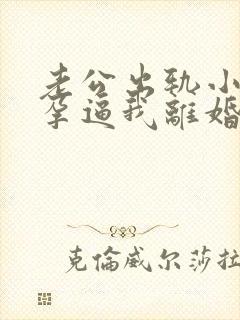 老公出轨小
孕逼我離婚
克倫威尔莎拉